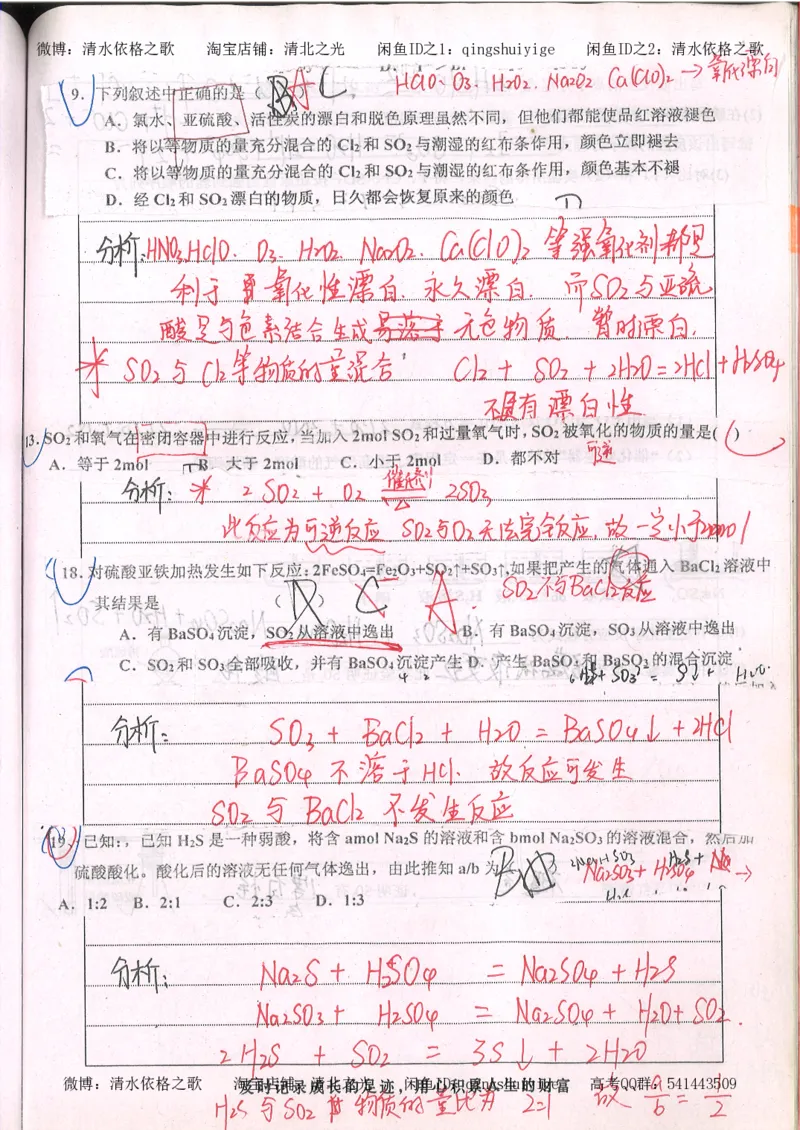 微博：清水依格之歌 淘宝店铺：清北之光 闲鱼ID之1：qingshuiyige 闲鱼ID之2：清水依格之歌
HClO. O3. H2O2. Na2O2 Ca(ClO)2 → 氧化漂白
9. 下列叙述中正确的是（ C
A．氯水、亚硫酸、活性炭的漂白和脱色原理虽然不同，但他们都能使品红溶液褪色
B．将以等物质的量充分混合的 Cl2 和 SO2 与潮湿的红布条作用，颜色立即褪去
C．将以等物质的量充分混合的 Cl2 和 SO2 与潮湿的红布条作用，颜色基本不褪
D．经 Cl2 和 SO2 漂白的物质，日久都会恢复原来的颜色
分析: HNO3. HClO. O3. H2O2. Na2O2. Ca(ClO)2 等强氧化剂都是
利于 氧化性漂白. 永久漂白. 而SO2与亚硫
酸是与色素结合生成 无色物质. 暂时漂白.
* SO2与Cl2等物质的量混合 Cl2 + SO2 + 2H2O = 2HCl + H2SO4
没有漂白性
13. SO2 和氧气在密闭容器中进行反应，当加入 2mol SO2 和过量氧气时，SO2 被氧化的物质的量是( C )
A．等于 2mol B．大于 2mol C．小于 2mol D．都不对 可逆
分析: * 2SO2 + O2 催化剂 △ 2SO3
此反应为可逆反应 SO2与O2无法完全反应，故一定小于2mol
18. 对硫酸亚铁加热发生如下反应：2FeSO4=Fe2O3+SO2↑+SO3↑,如果把产生的气体通入 BaCl2 溶液中
其结果是 （ ） C A SO2不与BaCl2反应
A．有 BaSO4 沉淀，SO2 从溶液中逸出 B．有 BaSO4 沉淀，SO3 从溶液中逸出
C．SO2 和 SO3 全部吸收，并有 BaSO4 沉淀产生 D．产生 BaSO3 和 BaSO4 的混合沉淀
分析: SO3 + BaCl2 + H2O = BaSO4↓ + 2HCl
BaSO4 不溶于HCl. 故反应可发生
SO2 与 BaCl2 不发生反应
19. 已知:，已知 H2S 是一种弱酸，将含 amol Na2S 的溶液和含 bmol Na2SO3 的溶液混合，然后加
硫酸酸化。酸化后的溶液无任何气体逸出，由此推知 a/b 为 Na2SO3 + H2SO4
A．1:2 B．2:1 C．2:3 D．1:3
分析: Na2S + H2SO4 = Na2SO4 + H2S
Na2SO3 + H2SO4 = Na2SO4 + H2O + SO2.
2H2S + SO2 = 3S↓ + 2H2O
微博：清水依格之歌 淘宝店铺：清北之光 闲鱼ID：qingshuiyige 高考QQ群：541443509
及时记录成长的足迹，用心积累人生的财富
H2S与SO2 物质的量比为 2=1 故 a/b = 1/2